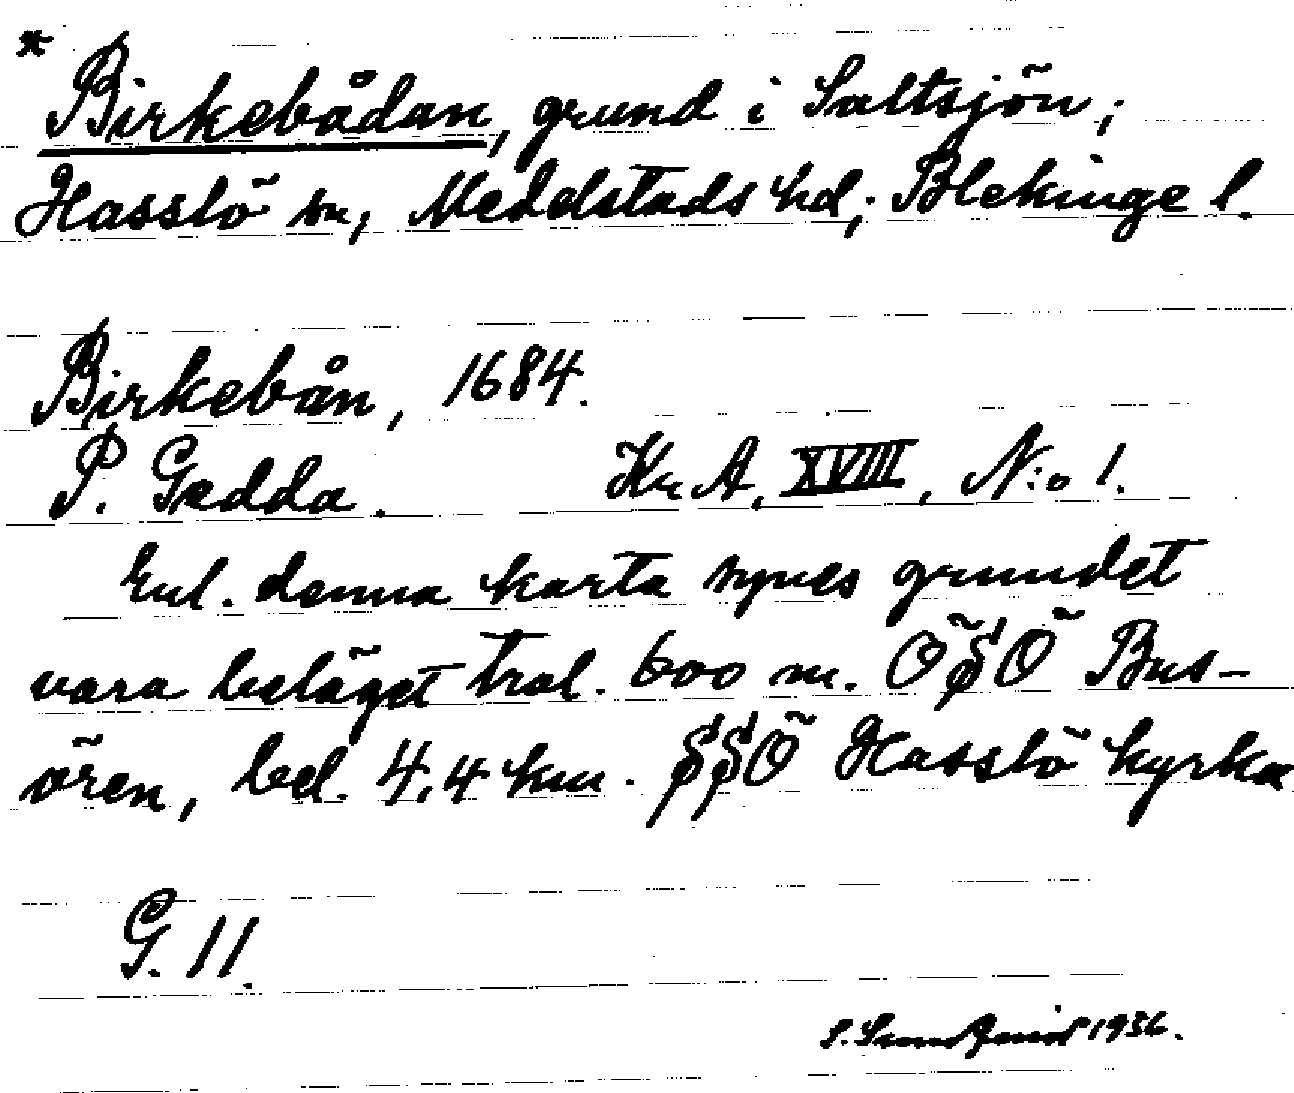 * Birkebådan, grund i Saltsjön;
Hasslö sn, Medelstads hd; Blekinge l.
Birkebån, 1684.
P. Gedda. Kr A, XVIII, N:o 1.
Enl. denna karta synes grundet
vara beläget trol. 600 m. ÖSÖ Bus-
ören, bel. 4,4 km. SSÖ Hasslö kyrka
G. 11.
S. Sundqvist 1936.